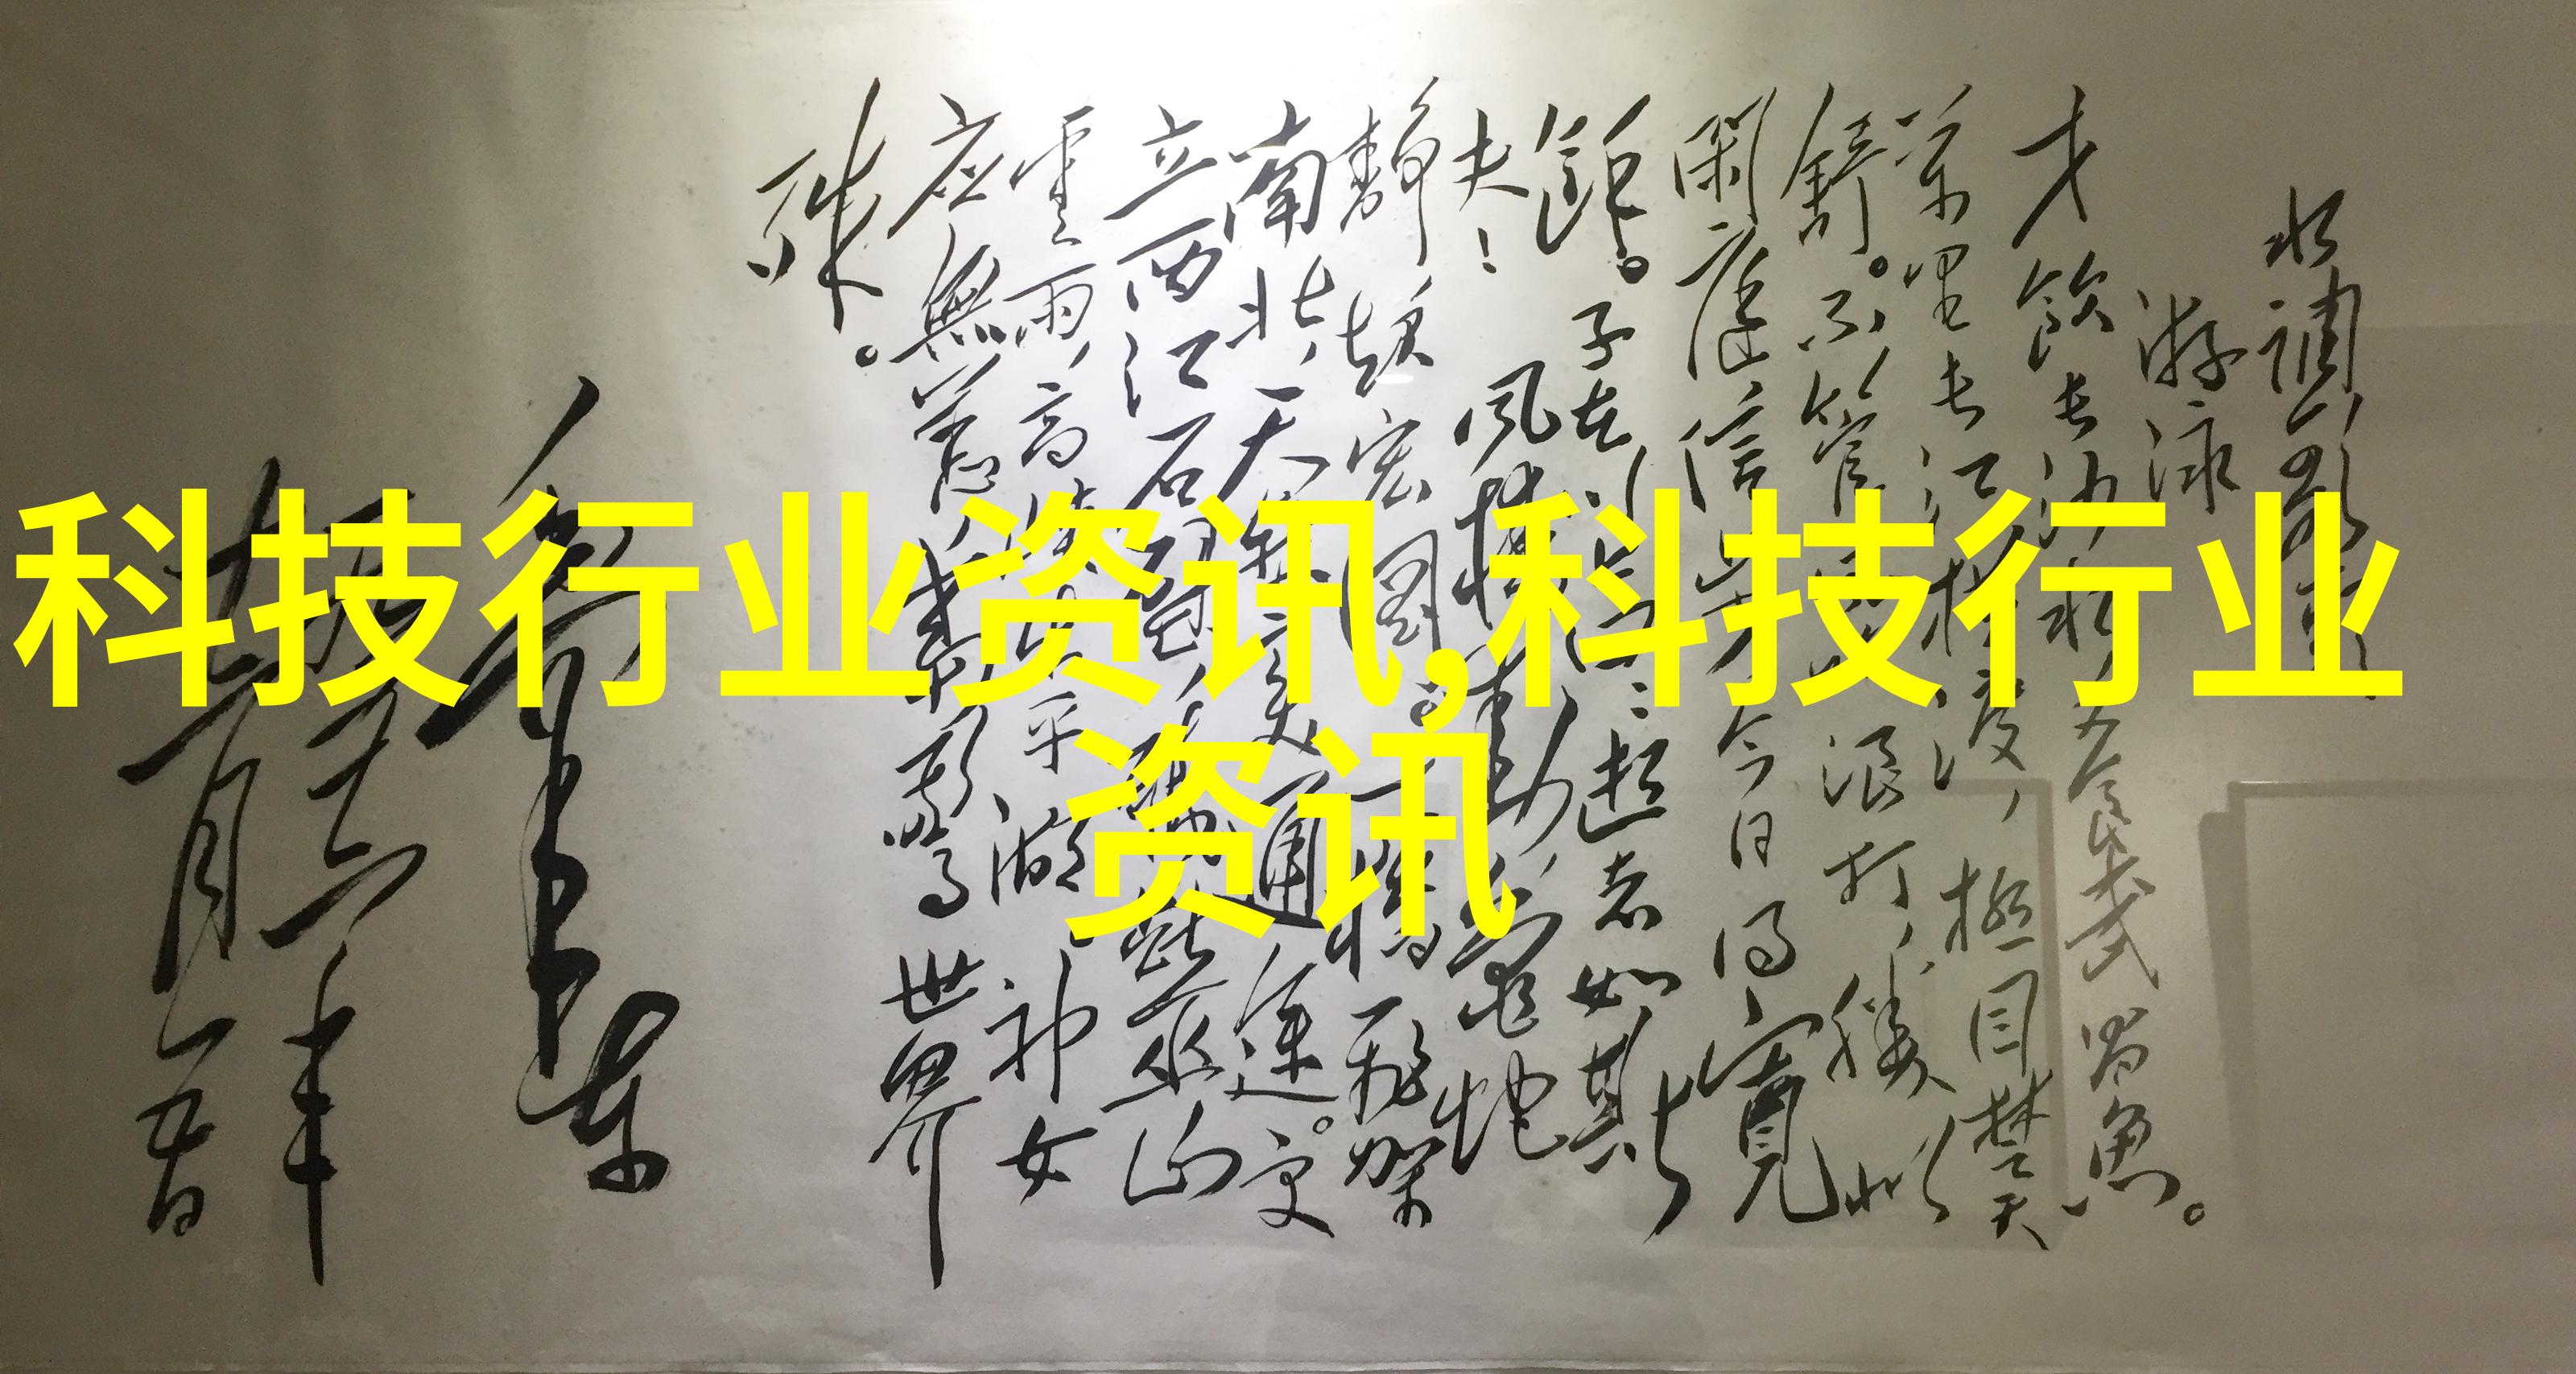 科技行业资讯,科技行业
资讯
水調歌头
游泳
才飲长沙水,又食武昌魚。
萬里长江横渡,极目楚天
舒。不管风吹浪打,勝似
闲庭信步,今日得寬
餘。子在川上曰:逝者如斯
夫!風樯動,龟蛇
静,起宏图。一桥飛架
南北,天堑变通途。更
立西江石壁,截断巫山
雲雨,高峡出平湖。神女
应無恙,当惊世界
殊。
毛泽东